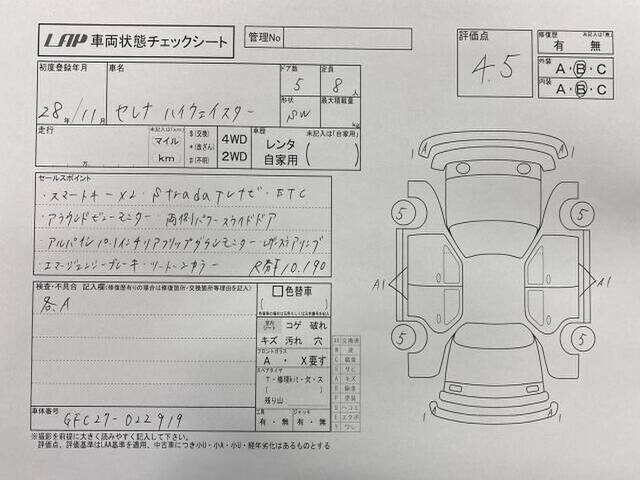 LAP 車両状態チェックシート
管理No
評価点
4.5
修復歴 未記入は「無」
有 ・ 無
外装 A・B・C
内装 A・B・C
初度登録年月
28年/11月
車名
セレナ ハイウェイスター
ドア数
5
定員
8人
形状
SW
最大積載量
kg
走行
万
未記入は「km」
マイル
km
$(交換)
*(改ざん)
#(不明)
4WD
2WD
車歴 未記入は「自家用」
レンタ
自家用
セールスポイント
・スマートキーX2・Stradaナビ・ETC
・アラウンドビューモニター・両側パワースライドドア
・アルパイン10.1インチリアフリップダウンモニター・レザーステアリング
・エマージェンシーブレーキ・ツートンカラー R券¥10.190
検査・不具合 記入欄(修復歴有りの場合は修復箇所・交換箇所等理由を記入)
各.A
色替車
室内シート
コゲ 破れ
キズ 汚れ 穴
フロントガラス
A ・ X要す
スペアタイヤ
T・修理kit・欠・ス
残り山
工具
有・無
ジャッキ
有・無
車体番号
GFC27-022919
※撮影を前提に大きく読みやすく記入して下さい。
評価点、評価基準はLAA基準を適用、中古車につき小U・小A・小U・経年劣化はあるものとする
XX 交換済
W 波
C 腐食
S サビ
A キズ
P 塗装
U ヘコミ
E エクボ
Y ワレ
1 A A 1
5 5
A1 A1
5 5
1 1